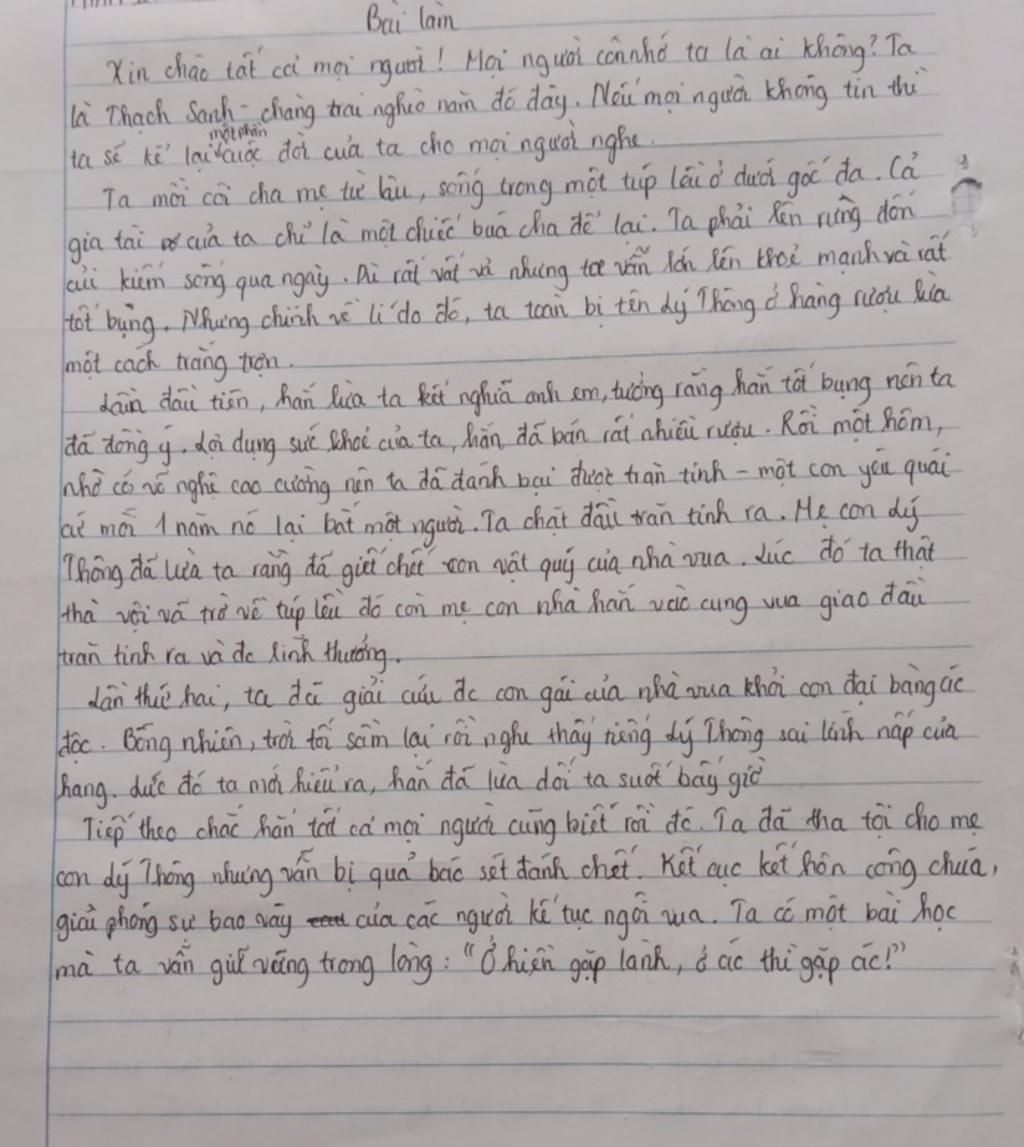 Bài làm
Xin chào tất cả mọi người! Mọi người còn nhớ ta là ai không? Ta
là Thạch Sanh - chàng trai nghèo năm đó đây. Nếu mọi người không tin thì
ta sẽ kể lại một phần cuộc đời của ta cho mọi người nghe.
Ta mồ côi cha mẹ từ lâu, sống trong một túp lều ở dưới gốc đa. Cả
gia tài của ta chỉ là một chiếc búa cha để lại. Ta phải lên rừng đốn
củi kiếm sống qua ngày. Dù rất vất vả nhưng ta vẫn lớn lên khoẻ mạnh và rất
tốt bụng. Nhưng chính vì lí do đó, ta toàn bị tên Lý Thông ở hàng rượu lừa
một cách trắng trợn.
Lần đầu tiên, hắn lừa ta kết nghĩa anh em, tưởng rằng hắn tốt bụng nên ta
đã đồng ý. Lợi dụng sức khoẻ của ta, hắn đã bán rất nhiều rượu. Rồi một hôm,
nhờ có võ nghệ cao cường nên ta đã đánh bại được trăn tinh - một con yêu quái
cứ mỗi 1 năm nó lại bắt một người. Ta chặt đầu trăn tinh ra. Mẹ con Lý
Thông đã lừa ta rằng đã giết chết con vật quý của nhà vua. Lúc đó ta thật
thà vội vã trở về túp lều đó còn mẹ con nhà hắn vào cung vua giao đầu
trăn tinh ra và đc lĩnh thưởng.
Lần thứ hai, ta đã giải cứu đc con gái của nhà vua khỏi con đại bàng ác
độc. Bỗng nhiên, trời tối sầm lại rồi nghe thấy tiếng Lý Thông sai lính nấp cửa
hang. Lúc đó ta mới hiểu ra, hắn đã lừa dối ta suốt bấy giờ
Tiếp theo chắc hẳn tất cả mọi người cũng biết rồi đó. Ta đã tha tội cho mẹ
con Lý Thông nhưng vẫn bị quả báo sét đánh chết. Kết cục kết hôn công chúa,
giải phóng sự bao vây của các người kế tục ngôi vua. Ta có một bài học
mà ta vẫn giữ vững trong lòng: "Ở hiền gặp lành, ở ác thì gặp ác!"